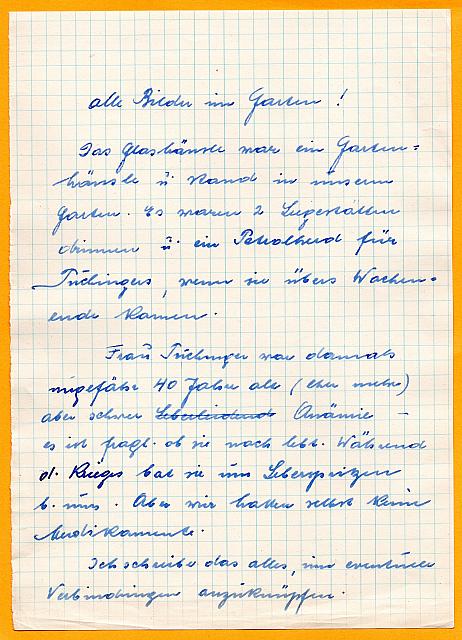 alle Bilder im Garten!
Das Glashäusle war ein Garten=
häusle u. stand in unserem
Garten. Es waren 2 Liegestätten
drinnen u. ein Petrolherd für
wenn sie übers Wochen=
ende kamen.
Frau war damals
ungefähr 40 Jahre alt (eher mehr)
aber schwer Leberleidend Anämie –
es ist fragl. ob sie noch lebt. Während
d. Krieges bat sie um Leberspritzen
b. uns. Aber wir hatten selbst keine
Medikamente.
Ich schreibe das alles, um eventuelle
Verbindungen anzuknüpfen.